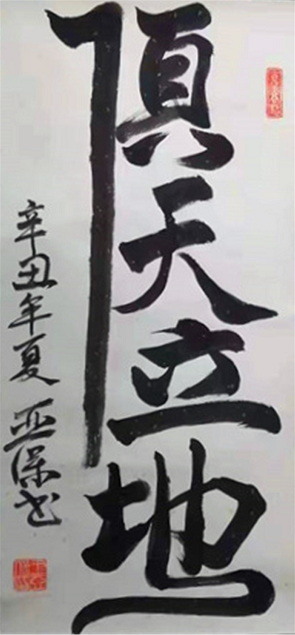 頂天立地
辛丑年夏 亚保书